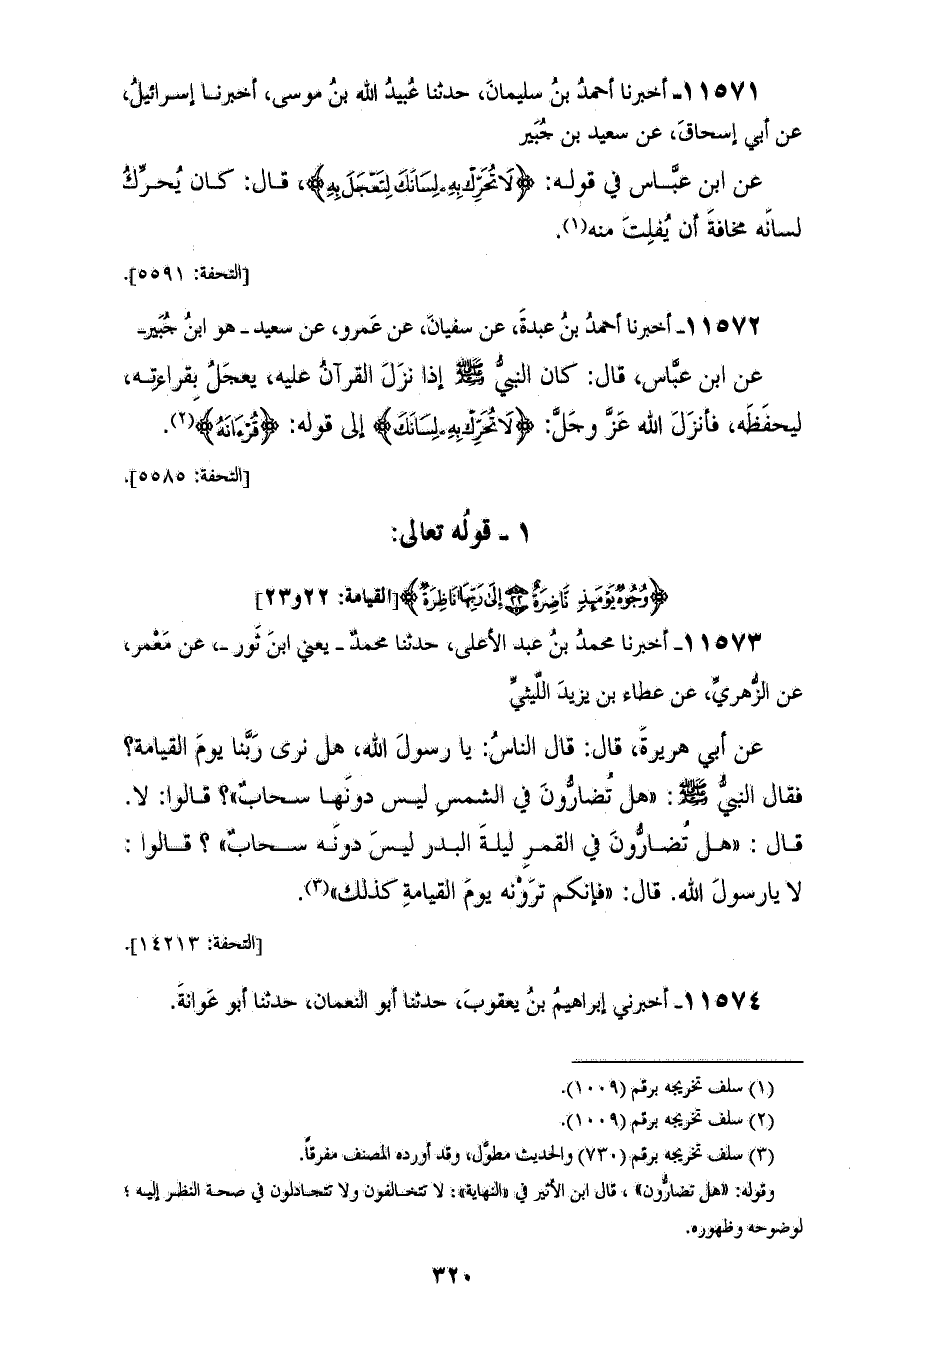 ١١٥٧١ـ أخبرنا أحمدُ بنُ سليمانَ، حدثنا عُبيدُ الله بنُ موسى، أخبرنـا إسـرائيلُ،
عن أبي إسحاقَ، عن سعيد بن جُبَير
عن ابن عبَّـاس في قولـه: ﴿لَا تُحَرِّكْ بِهِۦ لِسَانَكَ لِتَعْجَلَ بِهِ﴾، قـال: كـان يُحـرِّكُ
لسانَه مخافةَ أن يُفلِتَ منه(١).
[التحفة: ٥٥٩١].
١١٥٧٢ـ أخبرنا أحمدُ بنُ عبدةَ، عن سفيانَ، عن عَمرو، عن سعيد ـ هو ابنُ جُبَيرـ
عن ابن عبَّاس، قال: كان النبيُّ ﷺ إذا نزَلَ القرآنُ عليه، يعجَلُ بقراءتِـه،
ليحفَظَه، فأنزَلَ الله عَزَّ وجَلَّ: ﴿لَا تُحَرِّكْ بِهِۦ لِسَانَكَ﴾ إلى قوله: ﴿قُرْءَانَهُ﴾(٢).
[التحفة: ٥٥٨٥].
١ ـ قولُه تعالى:
﴿وُجُوهٌ يَوْمَئِذٍ نَّاضِرَةٌ ۝٢٢ إِلَى رَبِّهَا نَاظِرَةٌ﴾[القيامة: ٢٢و٢٣]
١١٥٧٣ـ أخبرنا محمدُ بنُ عبد الأعلى، حدثنا محمدٌ ـ يعني ابنَ ثَور ـ، عن مَعْمر،
عن الزُّهريِّ، عن عطاء بن يزيدَ اللَّيثيِّ
عن أبي هريرةَ، قال: قال الناسُ: يا رسولَ الله، هل نرى رَبَّنا يومَ القيامة؟
فقال النبيُّ ﷺ: «هل تُضارُّونَ في الشمسِ ليـس دونَهـا سـحابٌ»؟ قـالوا: لا.
قـال : «هـل تُضـارُّونَ في القمـرِ ليلـةَ البـدر ليـسَ دونَـه سـحابٌ» ؟ قـالوا :
لا يارسولَ الله. قال: «فإنكم ترَوْنه يومَ القيامةِ كذلك»(٣).
[التحفة: ١٤٢١٣].
١١٥٧٤ـ أخبرني إبراهيمُ بنُ يعقوبَ، حدثنا أبو النعمان، حدثنا أبو عَوانةَ.
(١) سلف تخريجه برقم (١٠٠٩).
(٢) سلف تخريجه برقم (١٠٠٩).
(٣) سلف تخريجه برقم (٧٣٠) والحديث مطوَّل، وقد أورده المصنف مفرقاً.
وقوله: «هل تضارُّون» ، قال ابن الأثير في «النهاية»: لا تتخـالفون ولا تتجـادلون في صحـة النظـر إليـه ؛
لوضوحه وظهوره.
٣٢٠